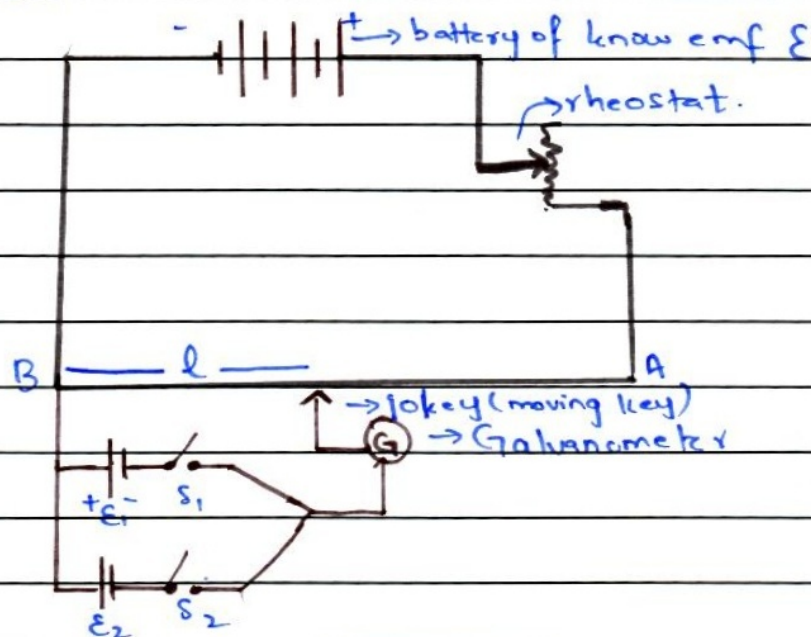 - + → battery of know emf ε
→ rheostat.
B l A
→ jokey (moving key)
G → Galvanometer
+ ε₁ - S₁
ε₂ S₂